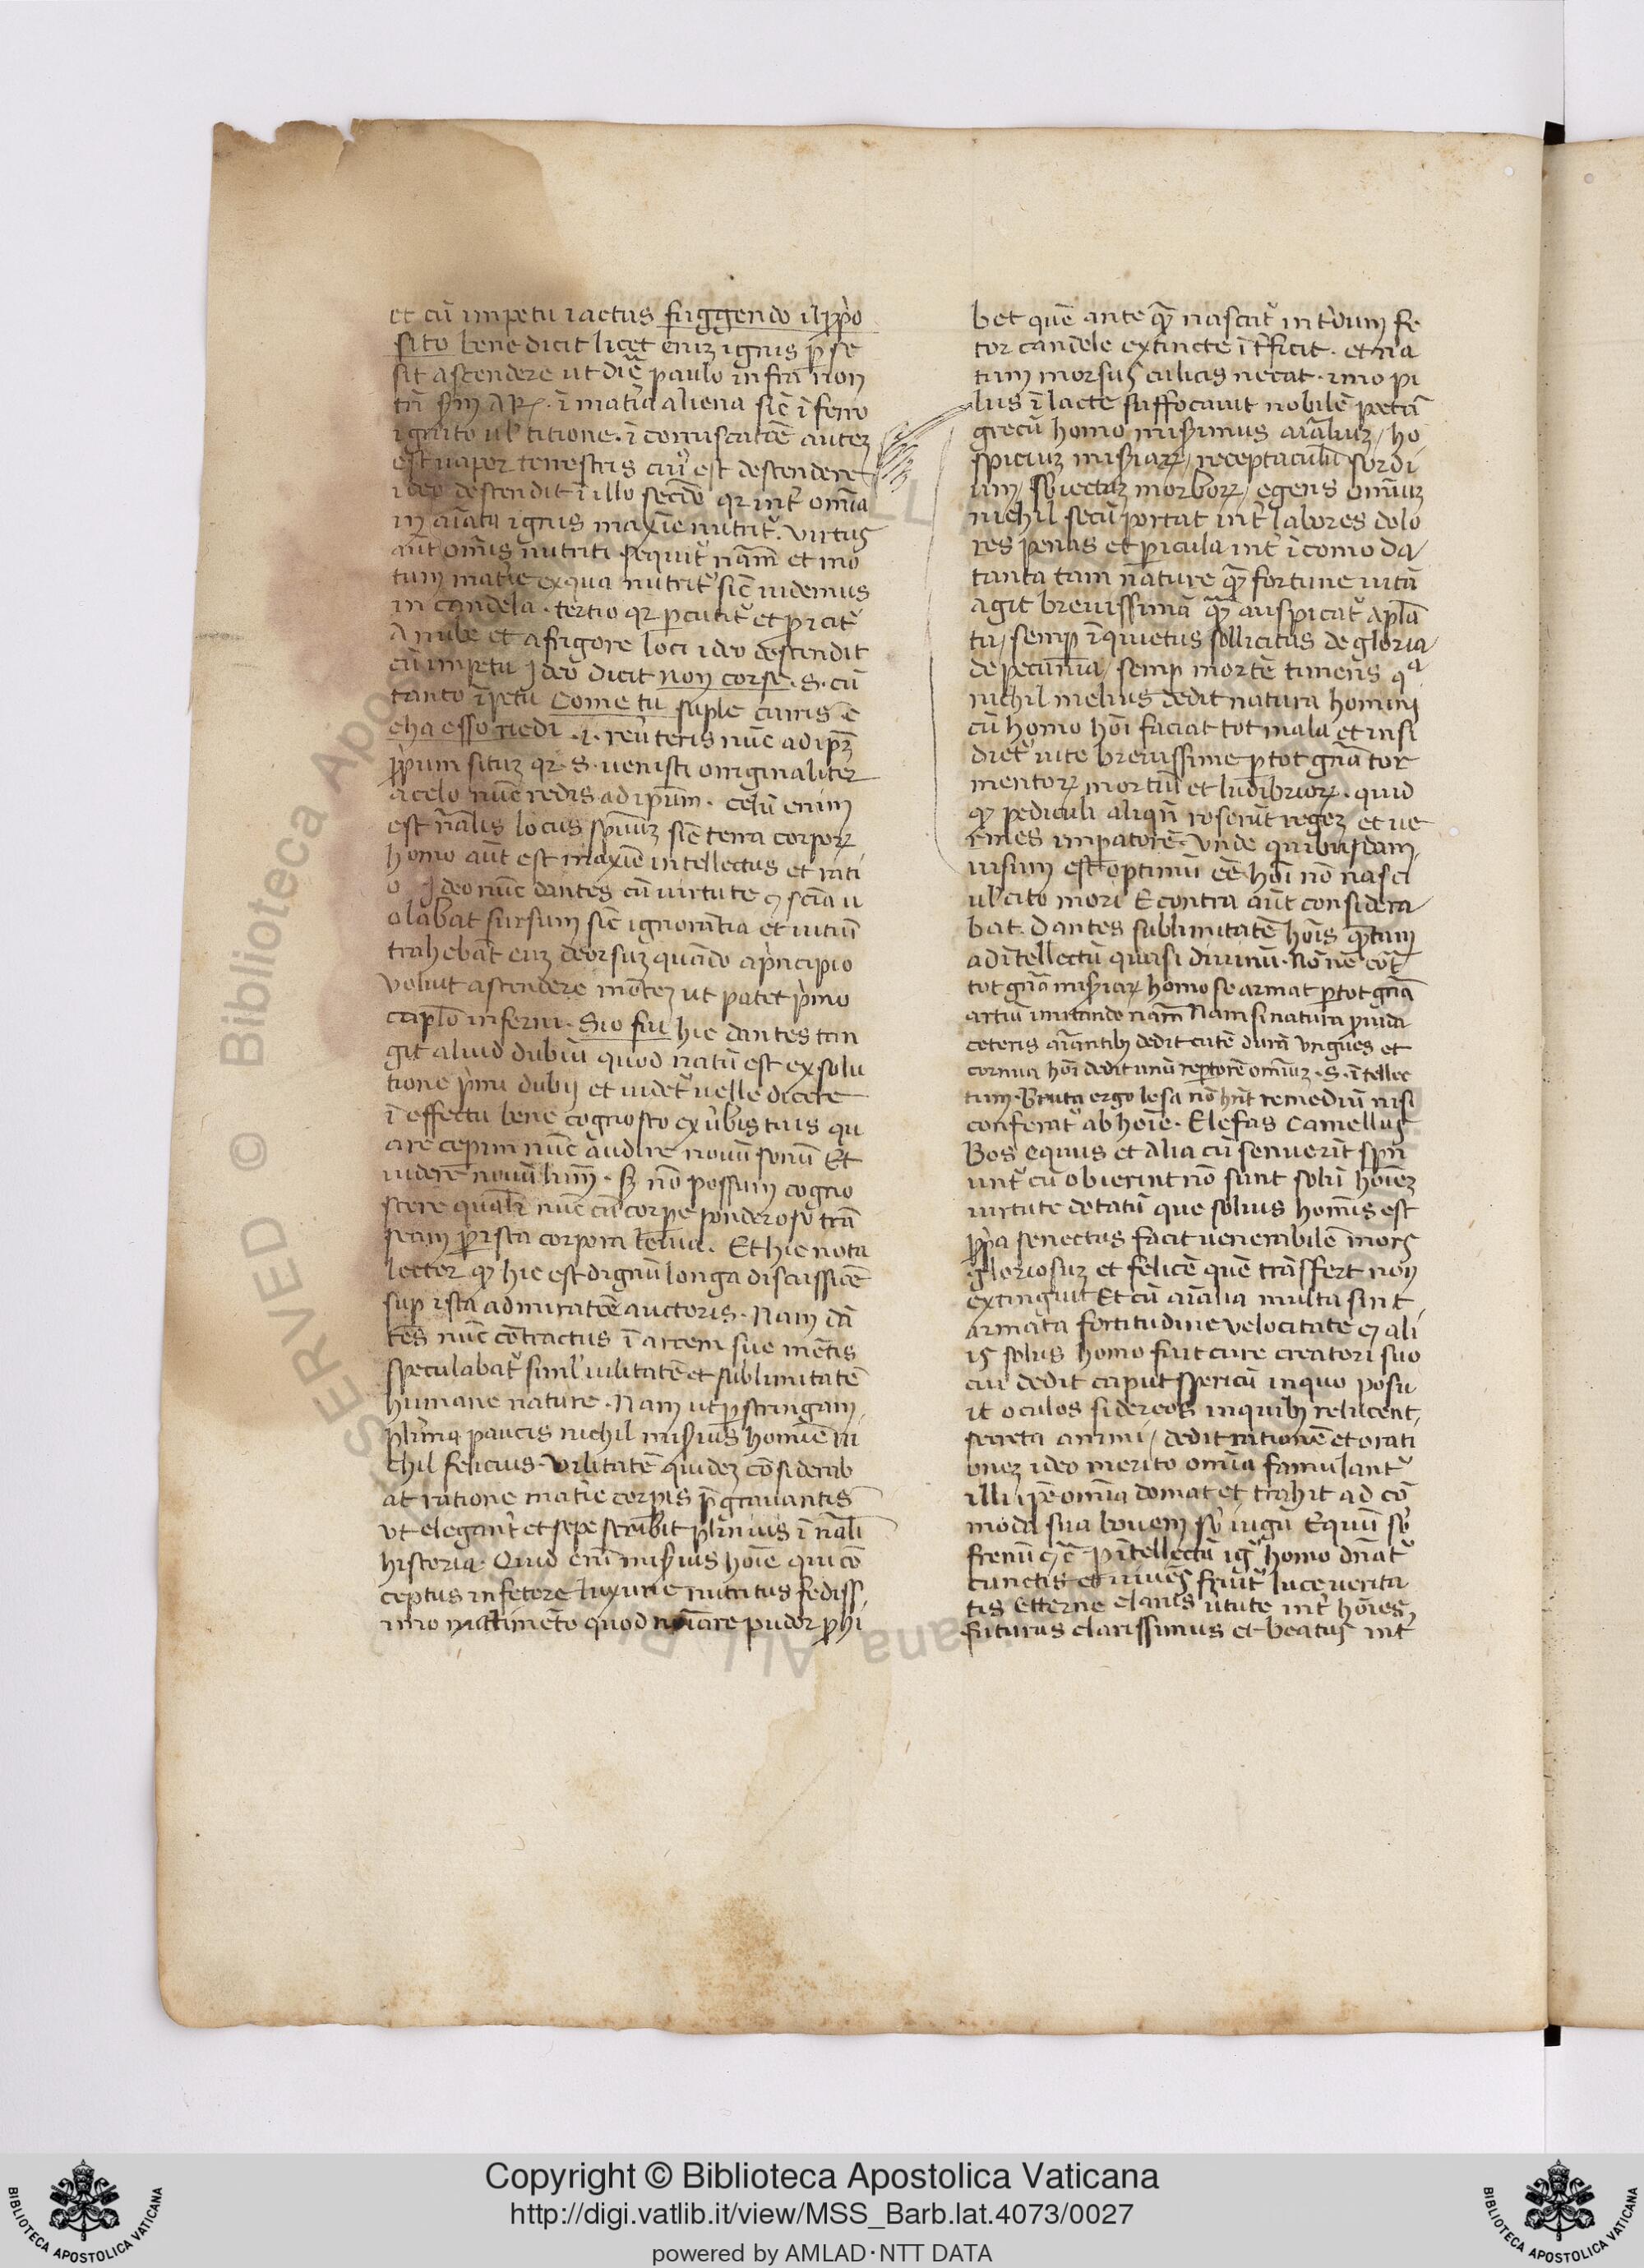 et cū impetu iactus fuggendo il p̱ṗo
sito bene dicit licet enīz ignis p̄ se
sit ascendere ut dic̄ paulo infra non
tn̄ sm̄ AR. ī mat̄ia aliena sic̄ ī ferro
ignito ul' titione. ī coruscatōē autez
est uapor terrestris cui' est descendere
ideo descendit ī illo sec̄do qr int̄ omīa
īaīata ignis maxīe nutrit'. virtus
aūt om̄is nutriti sequit' nām et mo
tum mat̄ie ex qua nutrit' sic̄ uidemus
in candela. tertio qr ꝑcutit' et ꝓicit'
A nube et a frigore loci ideo descendit
cū impetu Ideo dicit non corse. S. cū
tanto īpetu Come tu suple curris e
cha esso riedi .i. reūteris nūc ad ip̄z
ꝓp̱um situz qr. S. uenisti originaliter
a celo nūc redis ad ip̄um. celū enim
est nālis locus sp̄uūz sic̄ terra corpoꝝ
homo aūt est maxīe intellectus et rati
o. Ideo nūc dantes cū uirtute ꝯ scīa u
olabat sursum sic̄ ignorantia et uitiū
trahebāt euz deorsuz quando a p̱ncipio
voluit ascendere montez ut patet p̱mo
cap̱lo inferni. Sio fui hic dantes tan
git aliud dubiū quod natū est ex solu
tione p̱mi dubij et uidet' uelle dicere
ī effectu bene cognosco ex ūbis tuis qu
are cepim nūc audire nouū sonū Et
uidere nouū lum̄. sꝫ nō possum cogno
scere qualr̄ nūc cū corpe ponderoso trā
seam ꝑ ista corpora leuia. Et hic nota
lector qꝫ hic est dignū longa discussiōē
sup ista admiratōē auctoris. Nam dā
tes nūc cōtractus ī arcem sue mētis
speculabat' simul' uilitatē et sublimitatē
humane nature. Nam ut ꝑstringam
plīma paucis nichil mis̄ius homīe ni
chil felicius. vilitatē quidez cōsiderab
at ratione mat̄ie corpis p̄grauantis
vt elegant̄ et sepe scribit plinius ī nāli
historia. Quid enī mis̄ius hoīe qui cō
ceptus in fetore luxurie nutritus fediss
imo nut̄imēto quod noīare pudor ꝓhi
bet quē ante qꝫ nascat' int̄dum fe
tor candele extincte īt̄ficit. et na
tum morsus culicis necat. imo pi
lus ī lacte suffocauit nobilē poetā
grecū homo mis̄imus aīaliuz / ho
spiciuz mis̄iaꝝ / receptaculū sordi
um / sb̄iectuz morboꝝ / egens omīuz
nichil secū portat int̄ labores dolo
res penas et pericula int̄ īcomoda
tanta tam nature qꝫ fortune uitā
agit breuissimā qꝫ auspicat' a plā
tu / semp īquietus sollicitus de gloria
de pecunia / semp mortē timens qª
nichil melius dedit natura homini
cū homo hoī faciat tot mala et insi
diet' uite breuissime ꝑ tot gn̄a tor
mentoꝝ mortiū et ludibrioꝝ. quid
qꝫ pediculi aliqn̄ roserūt regez et ue
rmes impatorē. Vnde quibusdam
uisum est optimū eē hoī nō nasci
ul' cito mori E contra aūt considera
bat. Dantes sublimitatē hoīs q̄tum
ad ītellectū quasi diuinū. Nōne cōt̄
tot gn̄a mis̄iaꝝ homo se armat ꝑ tot gn̄a
artiū imitando nām Nam si natura ꝓuida
ceteris aīantibꝫ dedit cutē durā vngues et
cornua hoī dedit unū reꝑtorē omīuz. S. ītellec
tum. Bruta ergo lesa nō hn̄t remediū nisi
conferat' ab hoīe. Elefas Camellus
Bos equus et Alia cū senuerīt sꝑn
unt' cū obierint nō sunt solū hoīez
uirtute dotatū que solius homīs est
ꝓp̱a senectus facit uenerabilē mors
gloriosuz et felicē quē trāsfert non
extinguit Et cū aīalia multa sint
armata fortitudine velocitate ꝯ ali
is solus homo fuit cure creatori suo
cui dedit caput spericū in quo posu
it oculos sidereos in quibꝫ relucent
secreta animi / dedit rationē et orati
onez ideo merito omīa famulant'
illi ip̄e omīa domat et trahit ad cō
moda sua bouem sb̄ iugū Equū sb̄
frenū ꝯ c̄. ꝑ ītellectū igr̄ homo dn̄at'
cunctis et uiuēs fruit' luce uerita
tis etterne clarus ūtute int̄ hoīes
futurus clarissimus et beatus int̄
Copyright © Biblioteca Apostolica Vaticana
http://digi.vatlib.it/view/MSS_Barb.lat.4073/0027
powered by AMLAD·NTT DATA
BIBLIOTECA APOSTOLICA VATICANA
BIBLIOTECA APOSTOLICA VATICANA